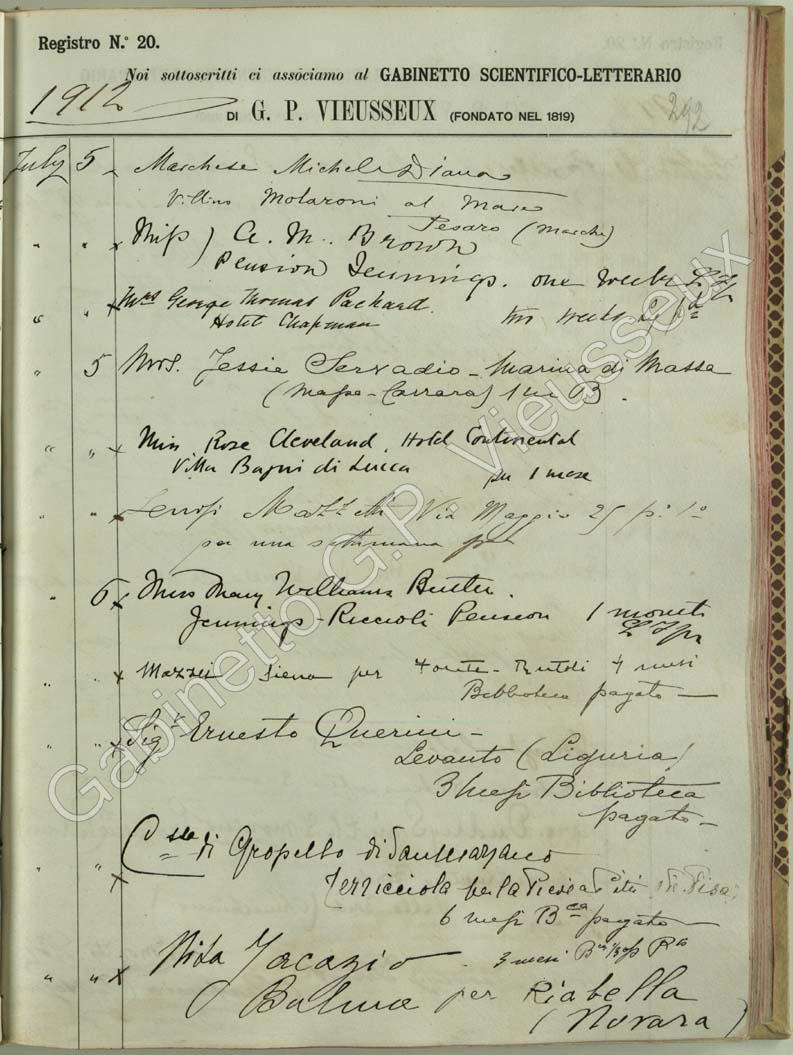 Registro N.º 20.
Noi sottoscritti ci associamo al GABINETTO SCIENTIFICO-LETTERARIO
1912
DI G. P. VIEUSSEUX (FONDATO NEL 1819)
292
July 5 Marchese Michele Diana
Villino Molaroni al Mare
Pesaro (Marche)
" " x Miss A. M. Brown
Pension Jennings. one week
" " x Mrs George Thomas Packard
Hotel Chapman weeks
" 5 Mrs. Jessie Servadio - Marina di Massa
(Massa-Carrara) 1 B.
" " x Miss Rose Cleveland, Hotel Continental
Villa Bagni di Lucca per 1 mese
" " x Mazzetti Via Maggio 25 p. 1º
per una settimana
" 6 x Miss Mary Williams Butler.
Jennings-Riccioli Pension 1 month
" " x Mazzei Siena per Fonte-Rutoli 4 mesi
Biblioteca pagato
" " x Sigr Ernesto Querini
Levanto (Liguria)
3 mesi Biblioteca
pagato
" " x Cssa di Gropello di
Terricciola per la di Pisa
6 mesi Bca pagato
" " x Nita Jacazio 3 mesi
Balma per Riabella
(Novara)
Gabinetto G.P. Vieusseux